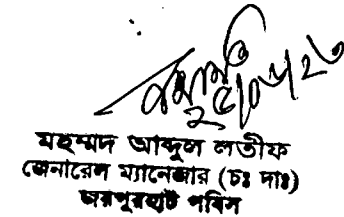 ২৫/০৬/২৩
মহম্মদ আব্দুল লতীফ
জেনারেল ম্যানেজার (চঃ দাঃ)
জয়পুরহাট পবিস